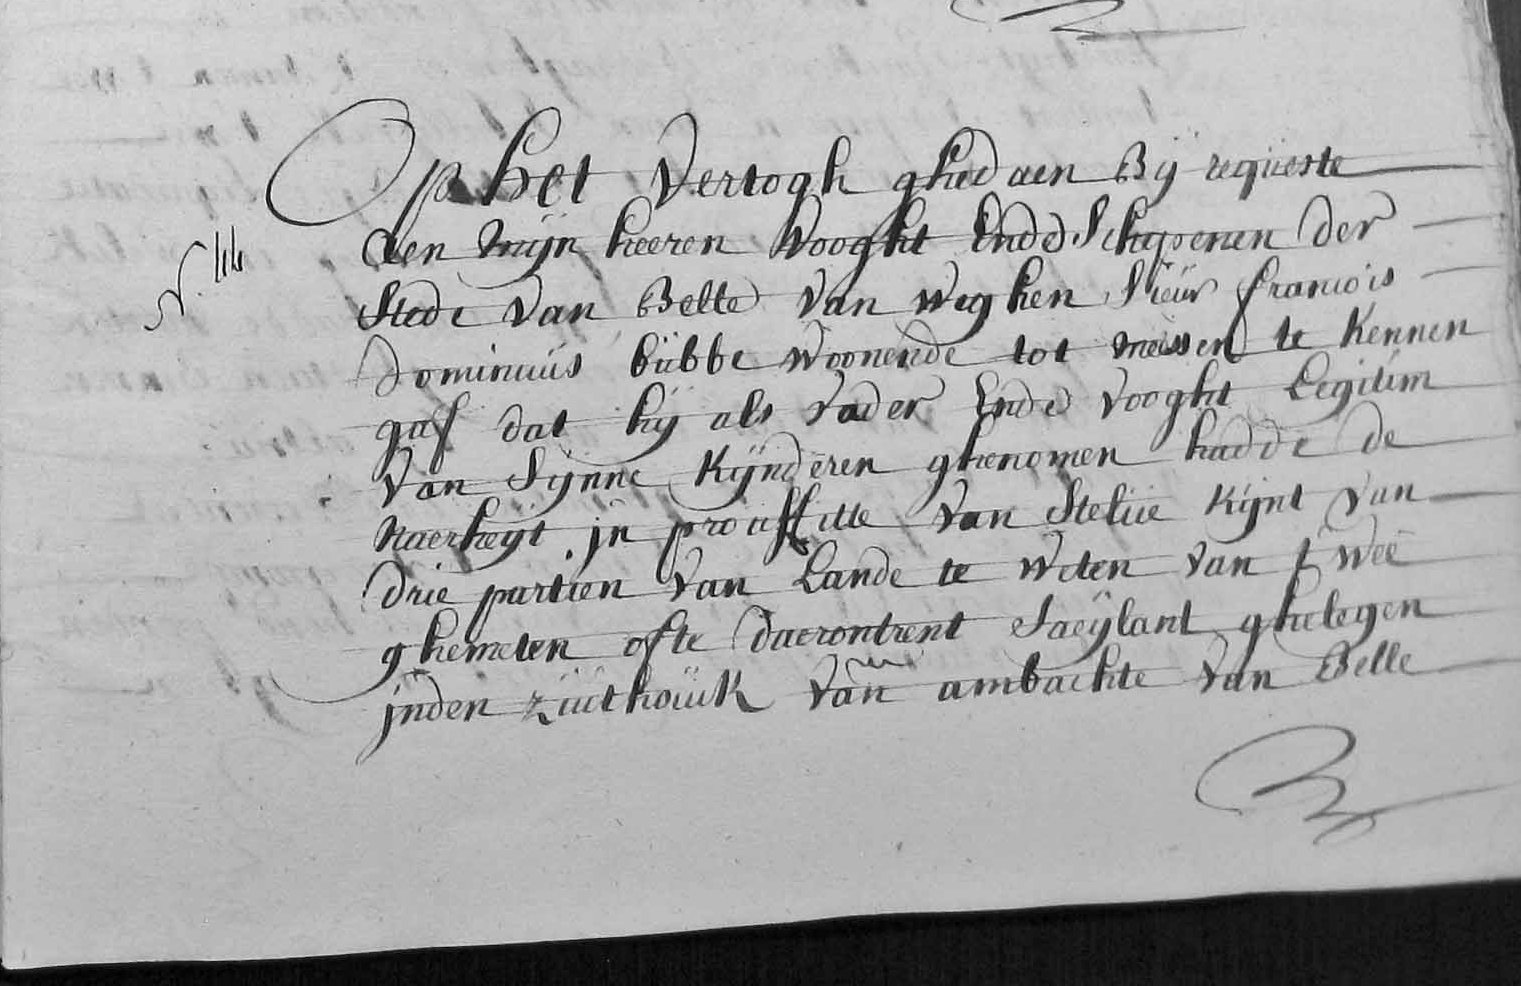 Op het Vertogh ghedaen Bij requeste
Aen Mijn heeren Vooght Ende Schepenen der
Stede van Belle van weghen Sieur francois
dominicus bubbe woonende tot meessen te kennen
gaf dat hij als vader Ende vooght Legitim
van Sijnne Kijnderen ghenomen hadde de
Naerheyt in prouffitte van Stelve Kijnt van
drie partien van Lande te weten van twee
ghemeten ofte daerontrent Saeylant gheleghen
jnden zuuthouck van ambachte van Belle